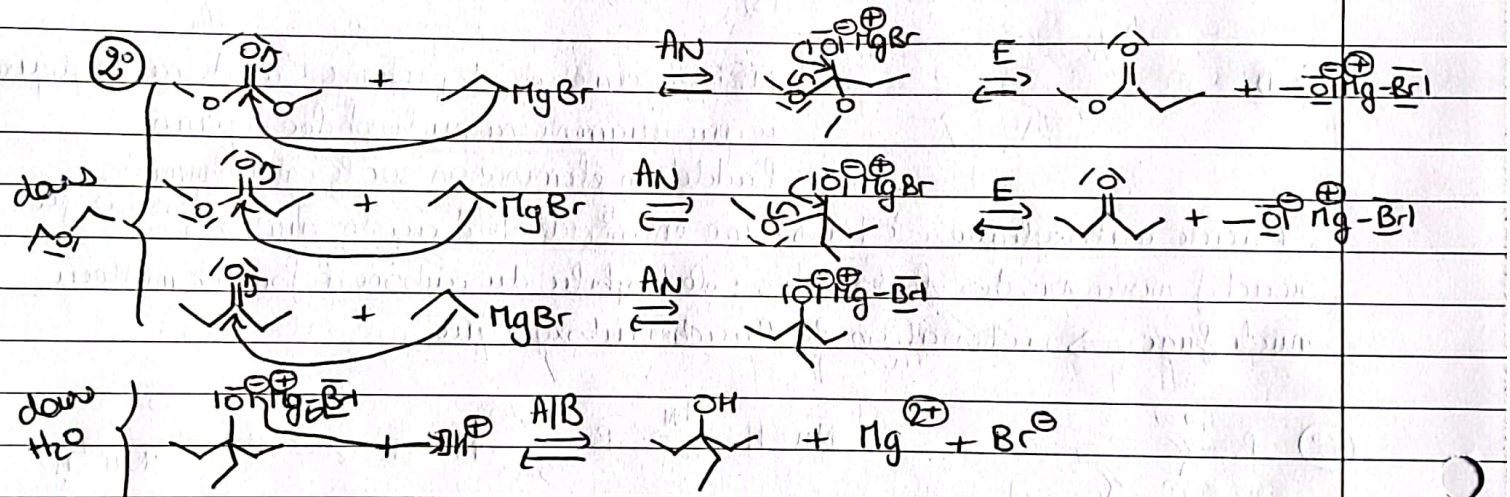 2°
|O| + MgBr AN ⇌ |O|⊖ ⊕MgBr E ⇌ O + −O|⊖ ⊕Mg-Br|
O O O O O
dans O
O + MgBr AN ⇌ |O|⊖ ⊕MgBr E ⇌ O + −O|⊖ ⊕Mg-Br|
O O
O + MgBr AN ⇌ |O|⊖ ⊕Mg-Br|
dans H₂O |O|⊖ ⊕Mg-Br| + H⊕ A/B ⇌ OH + Mg²⁺ + Br⊖